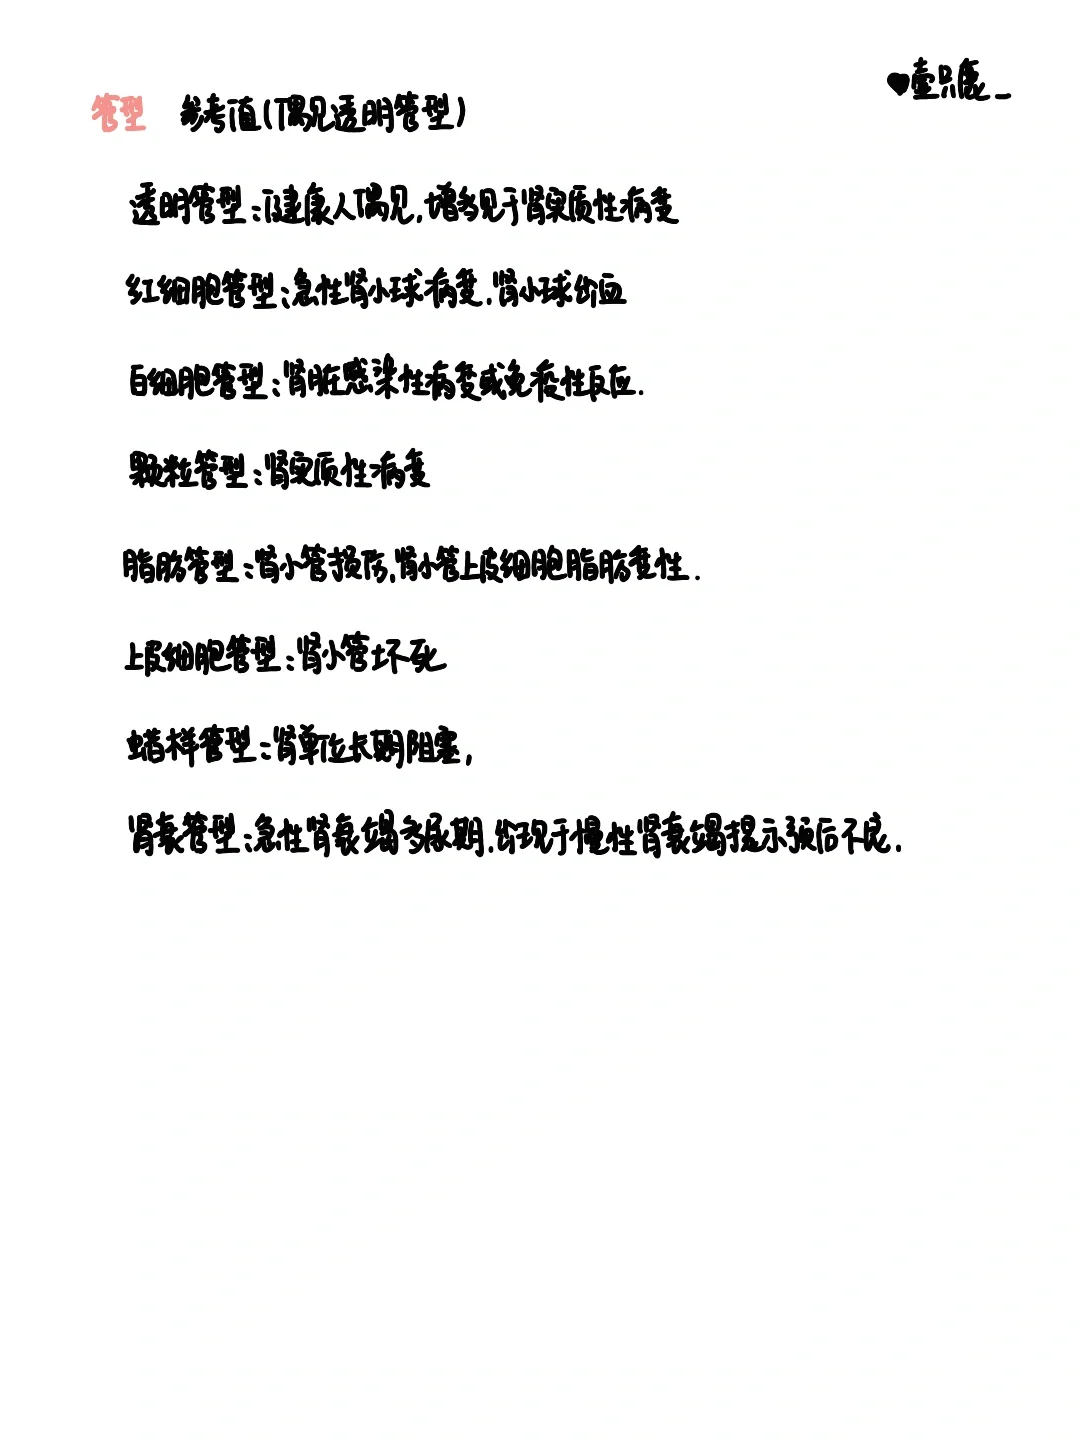 ♥壹只鹿_
管型 参考值(偶见透明管型)
透明管型:健康人偶见,增多见于肾实质性病变
红细胞管型:急性肾小球病变.肾小球出血
白细胞管型:肾脏感染性病变或免疫性反应.
颗粒管型:肾实质性病变
脂肪管型:肾小管损伤,肾小管上皮细胞脂肪变性.
上皮细胞管型:肾小管坏死
蜡样管型:肾单位长期阻塞,
肾衰管型:急性肾衰竭多尿期.出现于慢性肾衰竭提示预后不良.